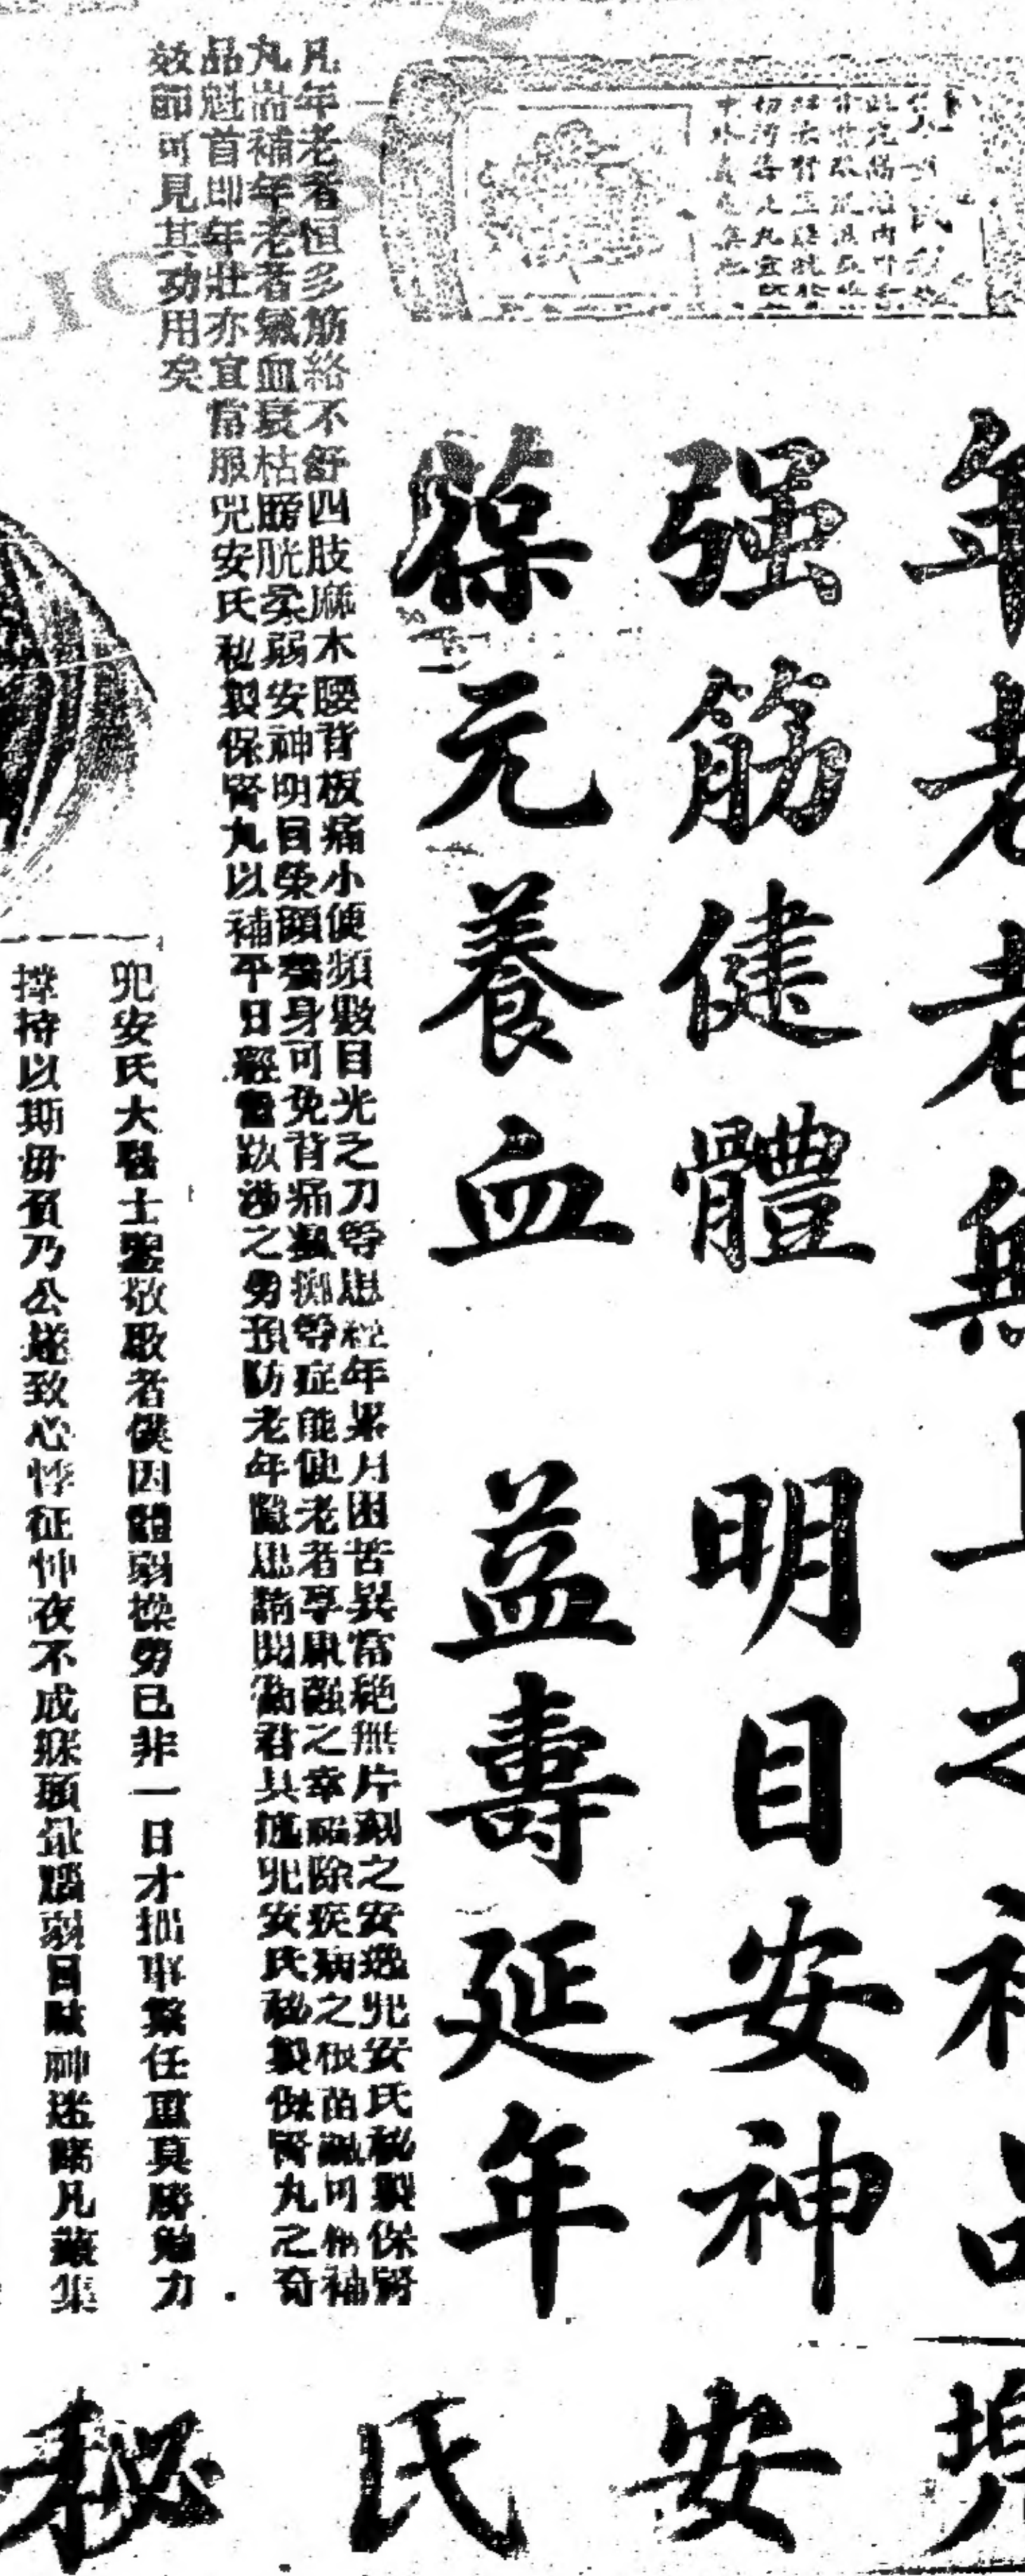 年老者無上之神品
强筋健體 明目安神
葆元養血 益壽延年
凡年老者恒多筋絡不舒四肢麻木腰背板痛小便頻數目光之力等患經年累月困苦異常絕無片刻之安逸兜安氏秘製保腎
丸專補年老者氣血衰枯膀胱柔弱安神明目榮顏聲身可免背痛瘋痢等症能使老者享康强之幸福除疾病之根苗誠可稱補
品魁首即年壯亦宜常服兜安氏秘製保腎丸以補平日經營跋涉之勞預防老年隱患請閱倫君具述兜安氏秘製保腎丸之奇
效即可見其功用矣
兜安氏大醫士鑒敬啟者僕因體弱操勞已非一日才拙事繁任重莫勝勉力
撐持以斯毋負乃公遂致心悸怔忡夜不成寐頭暈腦弱目眩神迷諸凡叢集
兜安氏秘